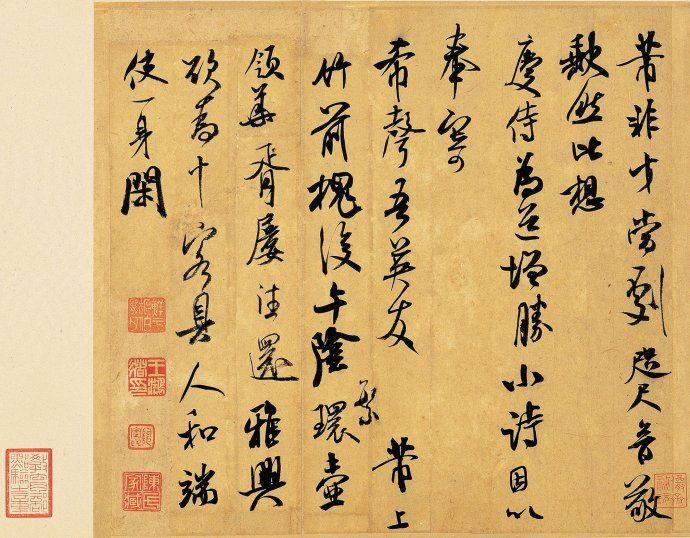 芾非才當劇咫尺音敬
缺然此想
慶侍為道增勝小詩因以
奉寄
希聲吾英友 芾上
繁
竹前槐後午陰環壺
領華胥屢往還雅興
欲為十客具人和端
使一身閑